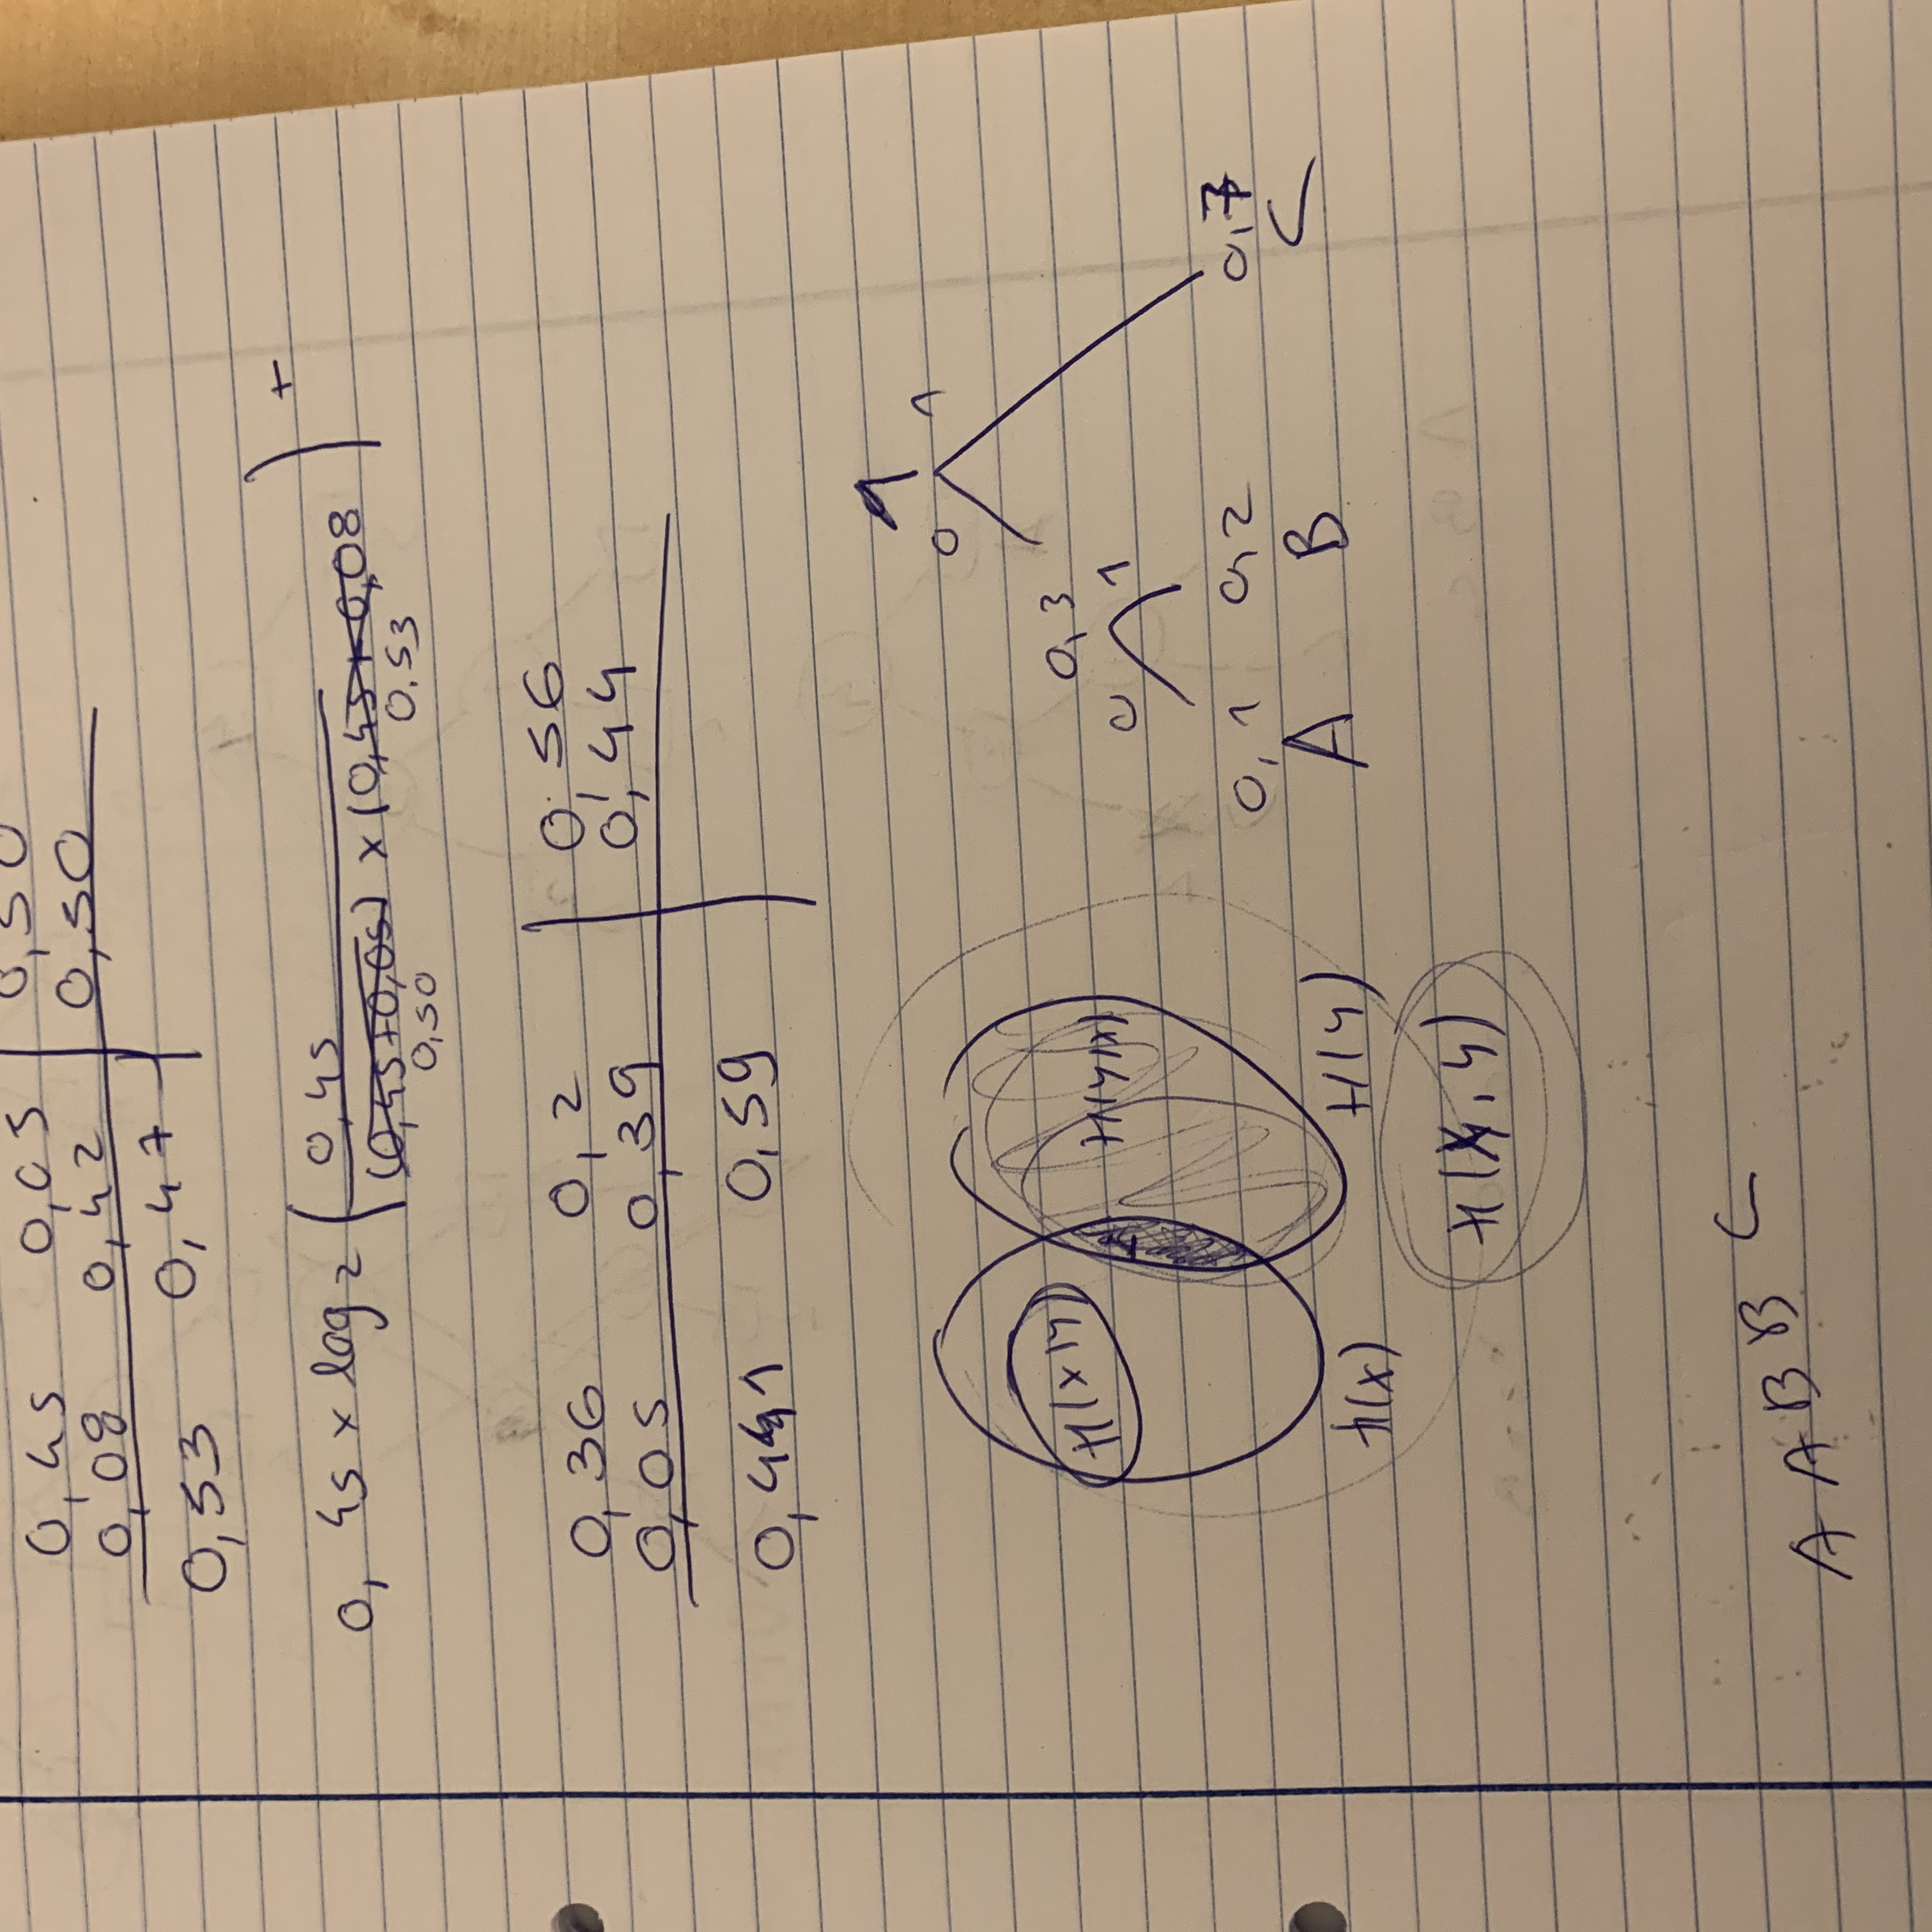 0,45 0,05 0,50
0,08 0,42 0,50
0,53 0,47
0,45 x log2 ( 0,45 ) +
(0,45+0,05) x (0,45+0,08
0,50 0,53
0,36 0,2 0,56
0,05 0,39 0,44
0,441 0,59
1
0 1
H(x|y) H(y|x) 0,3
0 1
0,1 0,2 0,7
A B C
H(x) H(y)
H(X, y)
A A B B C